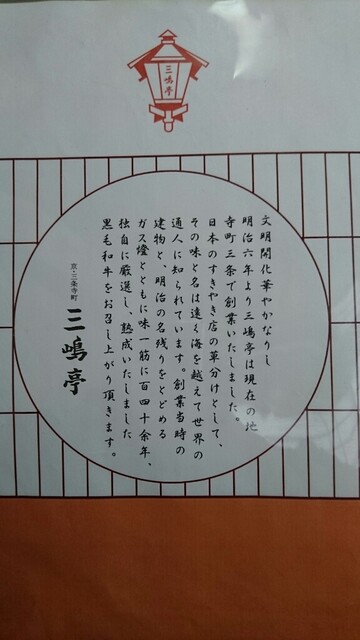 三嶋亭
文明開化華やかなりし
明治六年より三嶋亭は現在の地
寺町三条で創業いたしました。
日本のすきやき店の草分けとして、
その味と名は遠く海を越えて世界の
通人に知られています。創業当時の
建物と、明治の名残りをとどめる
ガス燈とともに味一筋に百四十余年、
独自に厳選し、熟成いたしました
黒毛和牛をお召し上がり頂きます。
京・三条寺町
三嶋亭